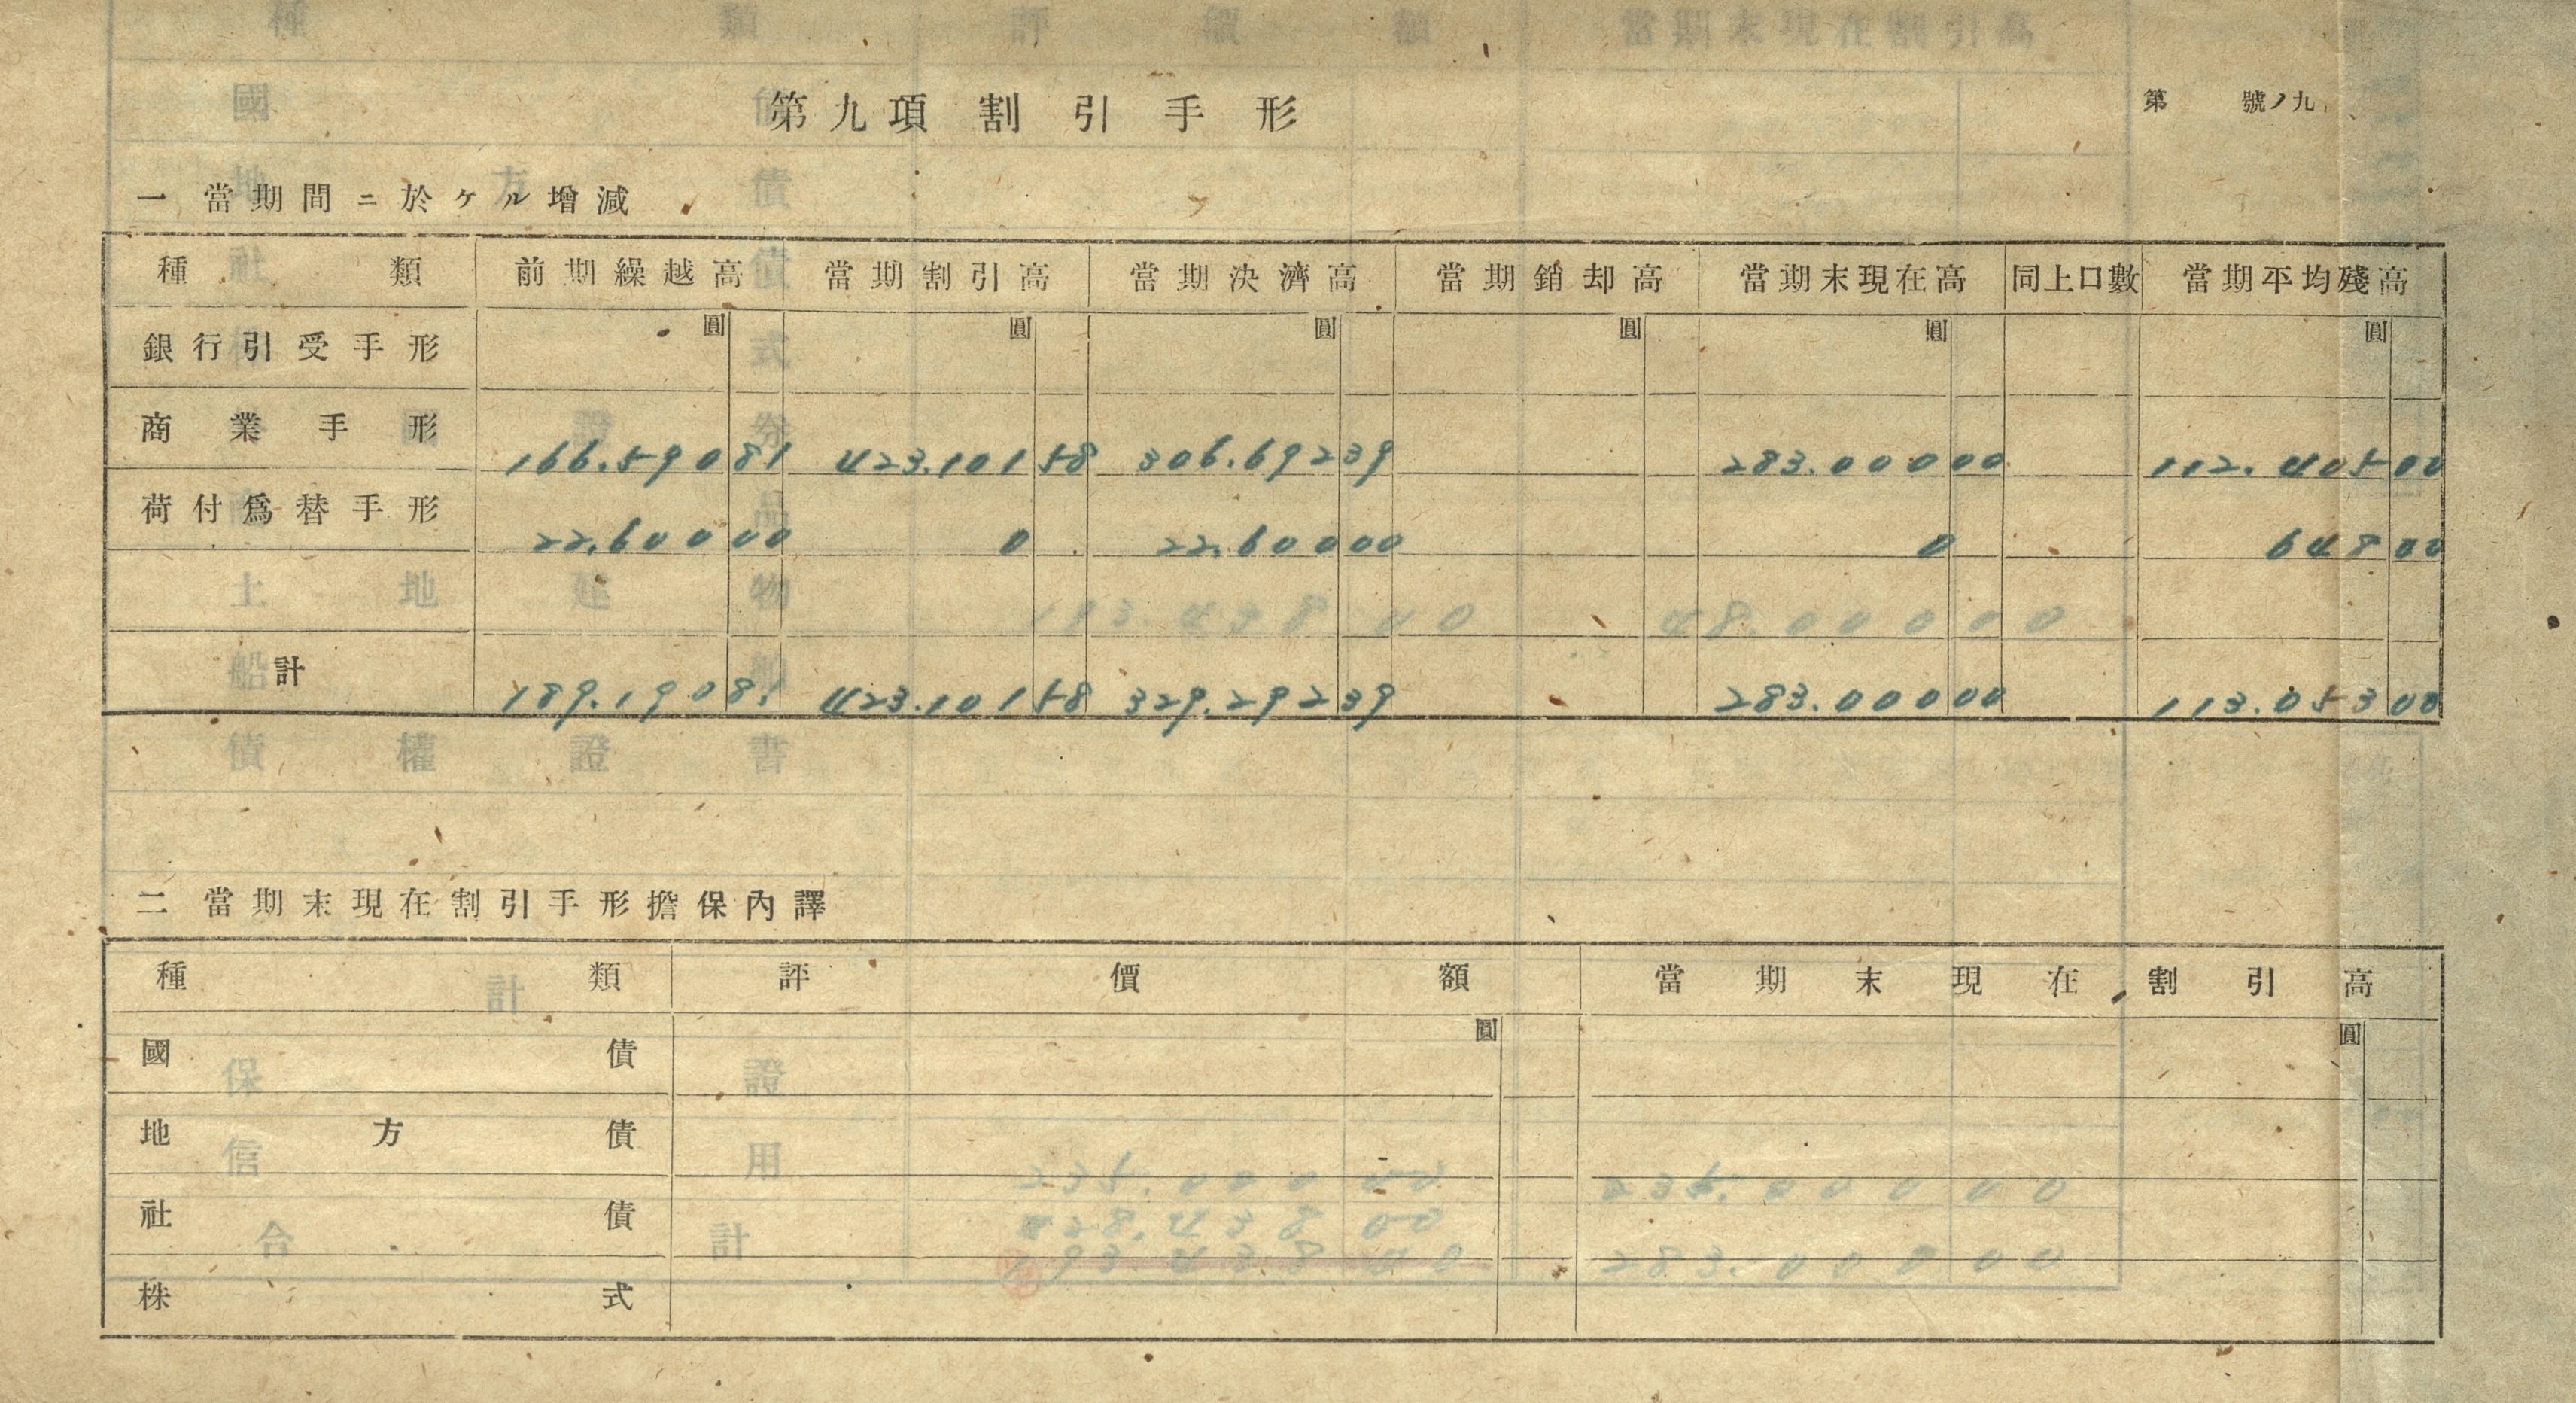 第九項 割引手形
第 號ノ九
一 當期間ニ於ケル增減
種類 前期繰越高 當期割引高 當期決濟高 當期銷却高 當期末現在高 同上口數 當期平均殘高
圓 圓 圓 圓 圓 圓
銀行引受手形
商業手形 166.590 81 423.101 58 306.692 39 283.000 00 112.405 00
荷付爲替手形 22.600 00 0 22.600 00 0 648 00
計 189.190 81 423.101 58 329.292 39 283.000 00 113.053 00
二 當期末現在割引手形擔保內譯
種類 評價額 當期末現在割引高
圓 圓
國債
地方債
社債
株式